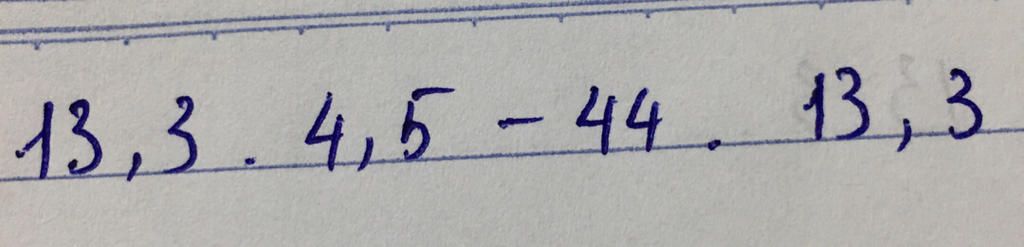 13,3 . 4,5 - 44 . 13,3